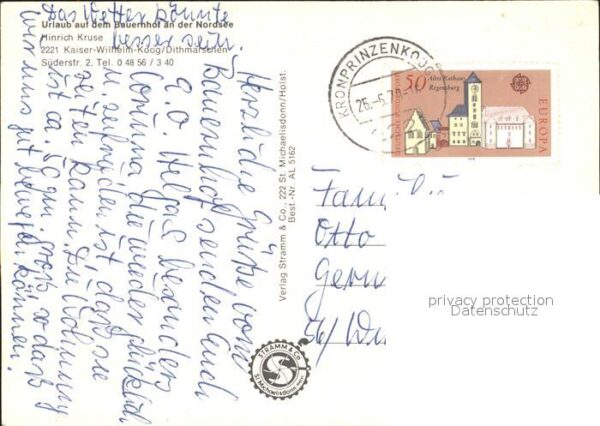 Das Wetter könnte
besser sein.
Urlaub auf dem Bauernhof an der Nordsee
Hinrich Kruse
2221 Kaiser-Wilhelm-Koog/Dithmarschen
Süderstr. 2, Tel. 0 48 56 / 3 40
Herzliche Grüße vom
Bauernhof senden Euch
O. O. Helga besonders
Corinna die wieder glücklich
u. zufrieden ist daß sie
reiten kann. Die Wohnung
ist ca. 50 qm. groß, so daß
wir uns gut bewegen können.
Verlag Stramm & Co., 222 St. Michaelisdonn/Holst.
Best.-Nr. AL 5162
STRAMM & Co.
St. Michaelisdonn
KRONPRINZENKOOG
26.-5.78
50
Altes Rathaus
Regensburg
EUROPA
CEPT
DEUTSCHE BUNDESPOST
1978
Otto
56/ Wu
privacy protection
Datenschutz